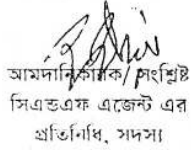 আমদানিকারক/সংশ্লিষ্ট
সিএন্ডএফ এজেন্ট এর
প্রতিনিধি, সদস্য